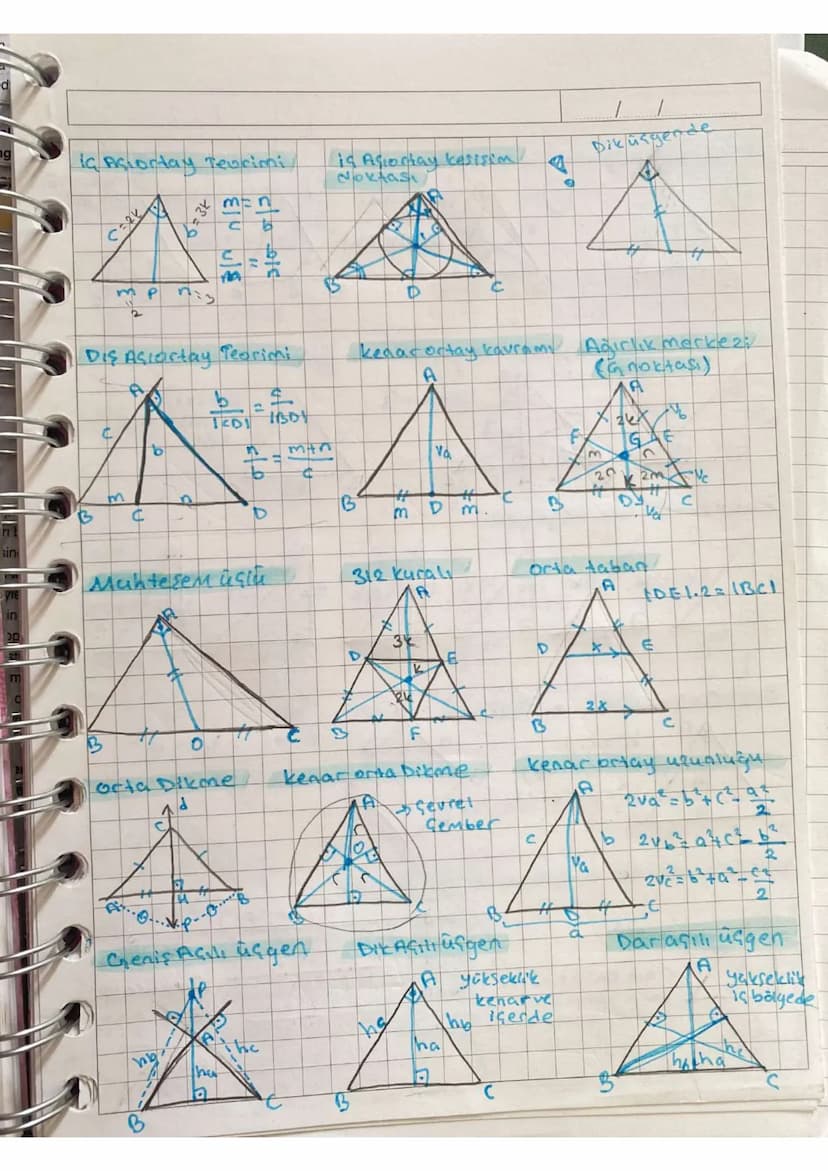 / /
İç Açıortay Teorimi
c=2k
b=3k
m P n=3
2
m/c = n/b
c/m = b/n
İç Açıortay kesişim
Noktası
A
B D C
!
Dik üçgende
Dış Açıortay Teorimi
A
c
b
m n
B C D
b/|CD| = c/|BD|
n/b = m+n/c
kenarortay kavramı
A
Va
B D C
m m
Ağırlık merkezi
(G noktası)
A
2k
Vb
F G E
m n
2n k 2m Vc
B D y C
Va
Muhteşem üçlü
A
B O C
312 kuralı
A
3k
D E
k
2k
B F C
orta taban
A
|DE|.2=|BC|
D x E
2x
B C
orta Dikme
d
C
A H B
P
kenar orta Dikme
A
→ Çevrel
Çember
O
r
r r
B C
kenarortay uzunluğu
A
c b
Va
B D C
a
2va²=b²+c²-a²/2
2vb²=a²+c²-b²/2
2vc²=b²+a²-c²/2
Geniş Açılı üçgen
P
A
hb hc
ha
B C
Dik Açılı üçgen
A
yükseklik
kenar ve
içerde
hc hb
ha
B C
Dar açılı üçgen
A
yükseklik
iç bölgede
hc
hb ha
B C